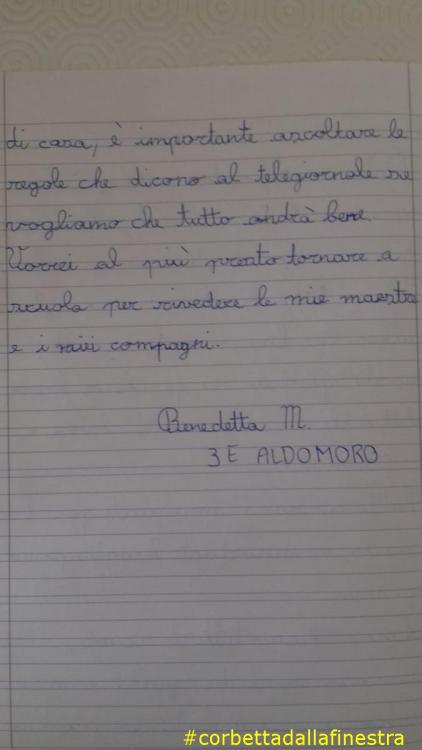 di casa, è importante ascoltare le
regole che dicono al telegiornale se
vogliamo che tutto andrà bene.
Vorrei al più presto tornare a
scuola per rivedere le mie maestre
e i miei compagni.
Benedetta M.
3 E ALDO MORO
#corbettadallafinestra